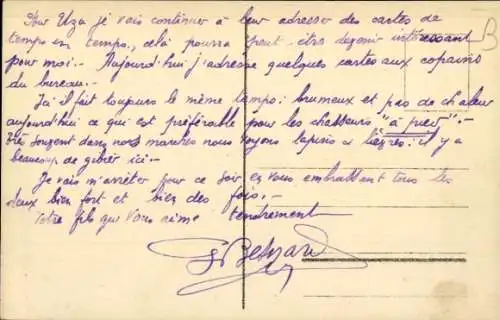 Pour Uza je vais continuer à leur adresser des cartes de
temps en temps, celà pourra peut-être devenir intéressant
pour moi.- Aujourd'hui j'adresse quelques cartes aux copains
du bureau.-
Ici il fait toujours le même temps: brumeux et pas de chaleur
aujourd'hui ce qui est préférable pour les chasseurs "à pied".-
Très souvent dans nos marches nous voyons lapins & lièvres: il y a
beaucoup de gibier ici.-
Je vais m'arrêter pour ce soir en vous embrassant tous les
deux bien fort et bien des fois.-
Votre fils qui vous aime tendrement
B